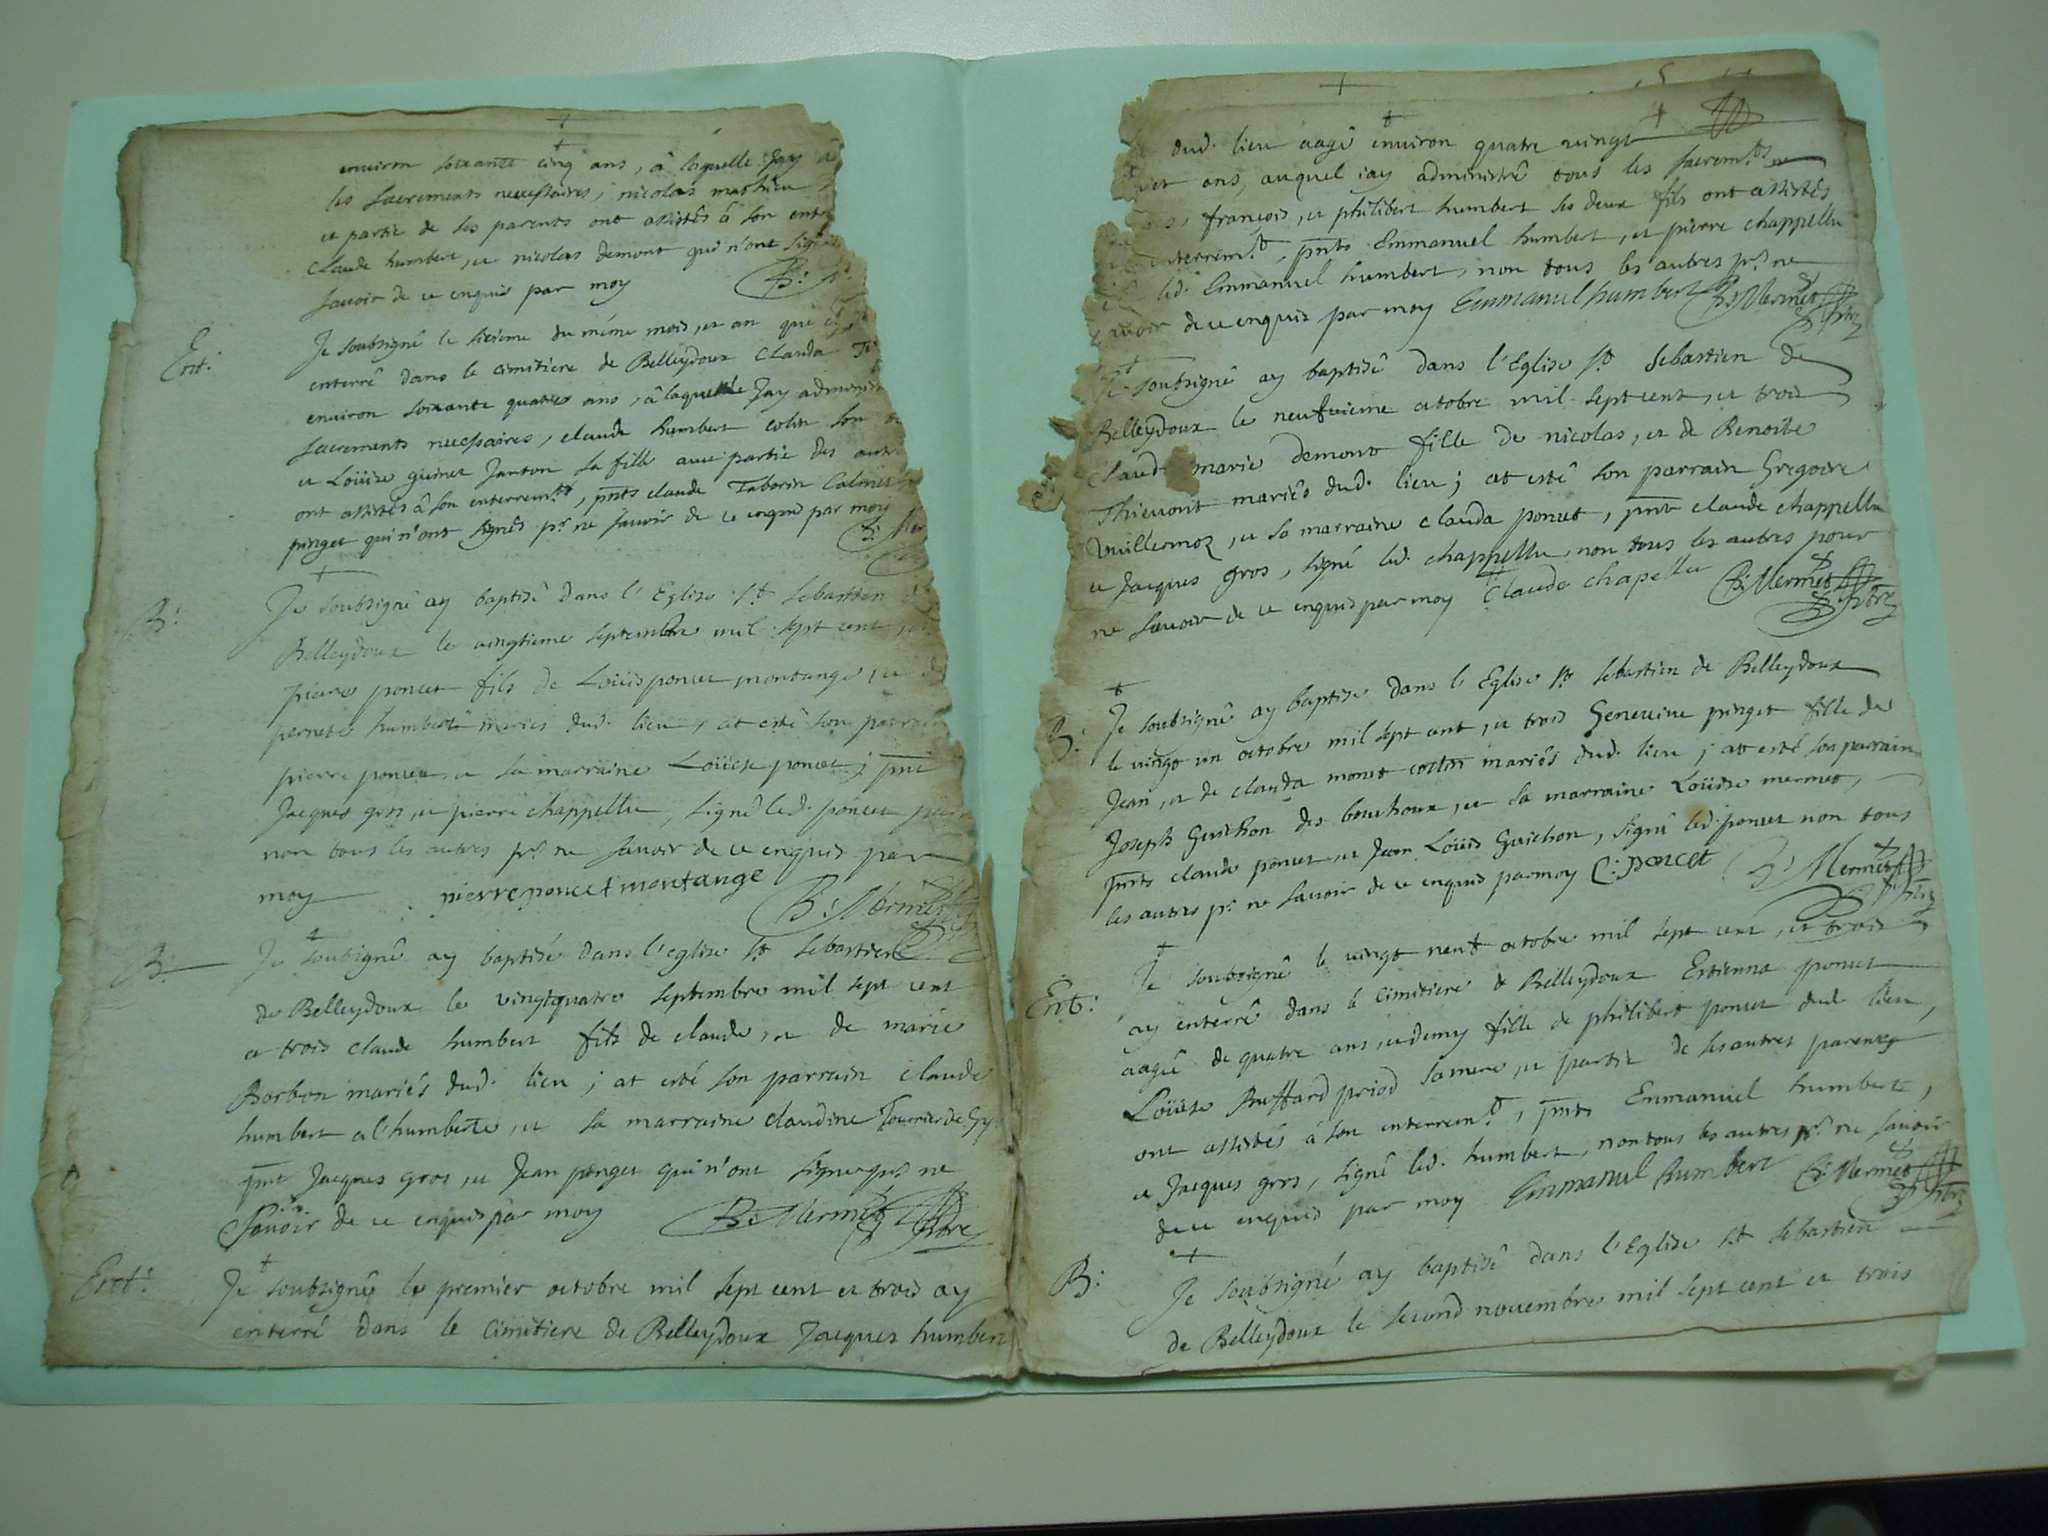 environ soixante cinq ans, â laquelle Jay a
les sacrements necessaires, nicolas mathieu
et partie de ses parents ont assistês â son ent
claude humbert, et nicolas demont qui n'ont sign
savoir de ce enquis par moy B:
Ent: Je soubsignê le sixieme du même mois, et an que
enterrê dans le cimitiere de Belleydoux Clauda
environ soixante quatre ans, â laquelle Jay adminis
sacrements necessaires, claude humbert colin son
et Loüise guinet Janton sa fille avec partie des aut
ont assistês â son enterremt, pnts claude Taborin
pinget qui n'ont signês pr ne savoir de ce enquis par moy
B: Mer
B: Je soubsignê ay baptisê dans l'Eglise st sebastien d
Belleydoux le vingtieme septembre mil sept cent
pierre poncet fils de Loüis poncet montange, et d
pernete humbert mariés dud. lieu, at estê son parrain
pierre poncet et sa marraine Loüise poncet; pnt
Jacques gros, et pierre chappellu, signê led. poncet
non tous les autres pr ne savoir de ce enquis par
moy pierre poncet montange
B: Mermet
B: Je soubsignê ay baptisé dans l'eglise st sebastien
de Belleydoux le vingtquatre septembre mil sept cent
et trois claude humbert fils de claude, et de marie
Borbon mariés dud. lieu; at esté son parrain claude
humbert a l'humberte, et sa marraine claudine
pnt Jacques gros, et Jean pinget qui n'ont signe pr ne
savoir de ce enquis par moy B: Mermet ptre
Ent: Je soubsignê le premier octobre mil sept cent et trois ay
enterré dans le cimitiere de Belleydoux Jacques humbert
dud. lieu aagê environ quatre vingt
ans, auquel iay administrê tous les sacremts
françois, et philibert humbert ses deux fils ont assistês
enterremt, pnts Emmanuel humbert, et pierre chappellu
led. Emmanuel humbert, non tous les autres pr ne
savoir de ce enquis par moy Emmanuel humbert B: Mermet ptre
Je soubsignê ay baptisê dans l'Eglise st sebastien de
Belleydoux le neufvieme octobre mil sept cent, et trois
Claud marie demont fille de nicolas, et de Benoite
Thievont mariês dud. lieu; at estê son parrain Gregoire
Vuillermoz, et sa marraine clauda poncet, pnt claude chappellu
et Jacques gros, signé led. chappellu, non tous les autres pour
ne savoir de ce enquis par moy Claude chapellu B: Mermet ptre
B: Je soubsignê ay baptise dans l'Eglise st sebastien de Belleydoux
le vingt un octobre mil sept cent, et trois Genevieve pinget fille de
Jean, et de clauda monet cottin mariês dud. lieu; at esté son parrain
Joseph Guichon des bouchoux, et sa marraine Loüise mermet,
pnts claude poncet et Jean Loüis Guichon, signê led. poncet non tous
les autres pr ne savoir de ce enquis par moy C: poncet B: Mermet ptre
Ent: Je soubsignê le vingt neuf octobre mil sept cent, et trois
ay enterrê dans le cimitiere de Belleydoux Estienna poncet
aagée de quatre ans, et demy fille de philibert poncet dud. lieu,
Loüise Buffard priod sa mere, et partie de ses autres parents
ont assistés â son enterremt, pnts Emmanuel humbert,
et Jacques gros, signê led. humbert, non tous les autres pr ne savoir
de ce enquis par moy Emmanuel humbert B: Mermet ptre
B: Je soubsigné ay baptisê dans l'Eglise st sebastien
de Belleydoux le second novembre mil sept cent et trois